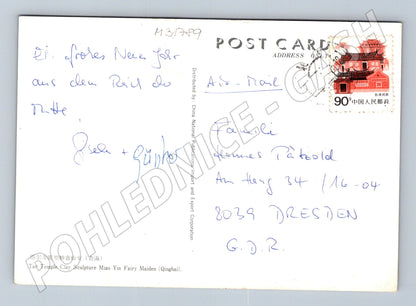 M31789
POST CARD
ADDRESS ONLY
Ein frohes Neues Jahr
aus dem Reich der
Mitte!
Gisela + Günther
Air-Mail
Familie
Hannes Pätzold
Am Hang 34 /16-04
8039 DRESDEN
G.D.R.
90分 中国人民邮政
Distributed by China National Publications Import and Export Corporation
Taer Temple Clay Sculpture Miao Yin Fairy Maiden (Qinghai)
POHLEDNICE - GASH